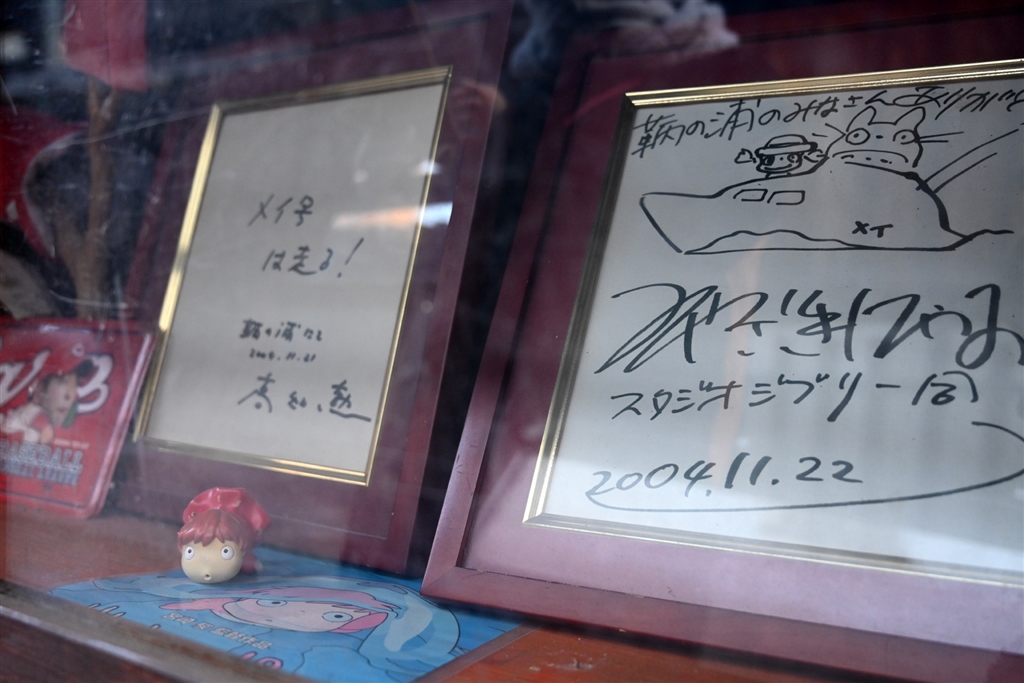 メイ号
は走る!
鞆の浦にて
2004.11.21
鞆の浦のみなさんありがとう
メイ
みやざきはやお
スタジオジブリ一同
2004.11.22
BASEBALL